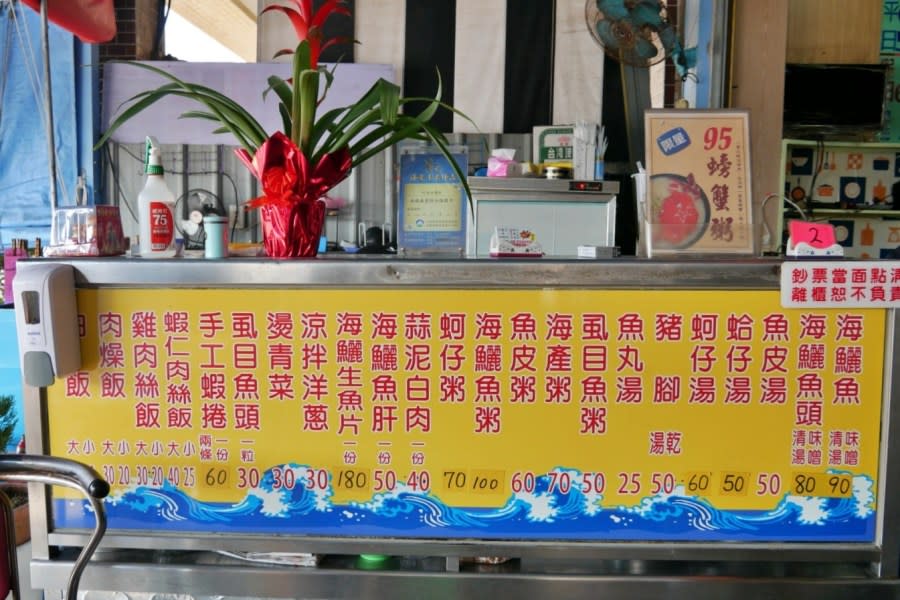 海鱺魚 味噌 清湯 90
海鱺魚頭 味噌 清湯 80
魚皮湯 50
蛤仔湯 50
蚵仔湯 60
豬腳 乾 湯 50
魚丸湯 25
虱目魚粥 50
海產粥 70
魚皮粥 60
海鱺魚粥 100
蚵仔粥 70
蒜泥白肉 一份 40
海鱺魚肝 一份 50
海鱺生魚片 一份 180
涼拌洋蔥 30
燙青菜 30
虱目魚頭 一粒 30
手工蝦捲 一份 兩條 60
蝦仁肉絲飯 小 大 25 40
雞肉絲飯 小 大 20 30
肉燥飯 小 大 20 30
飯 小 大
鈔票當面點清
離櫃恕不負責
2
限量
95
螃蟹粥
75